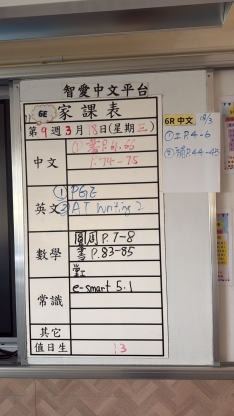 智愛中文平台
6E 家課表
第9週3月18日(星期三)
中文
① 書P.61, 66
P.74-75
英文
① PGE
② AT Writing 2
數學
圓周 P.7-8
書 P.83-85
常識
e-smart 5.1
其它
值日生 13
6R 中文 18/3
① 工P.4-6
② 補P.44-45